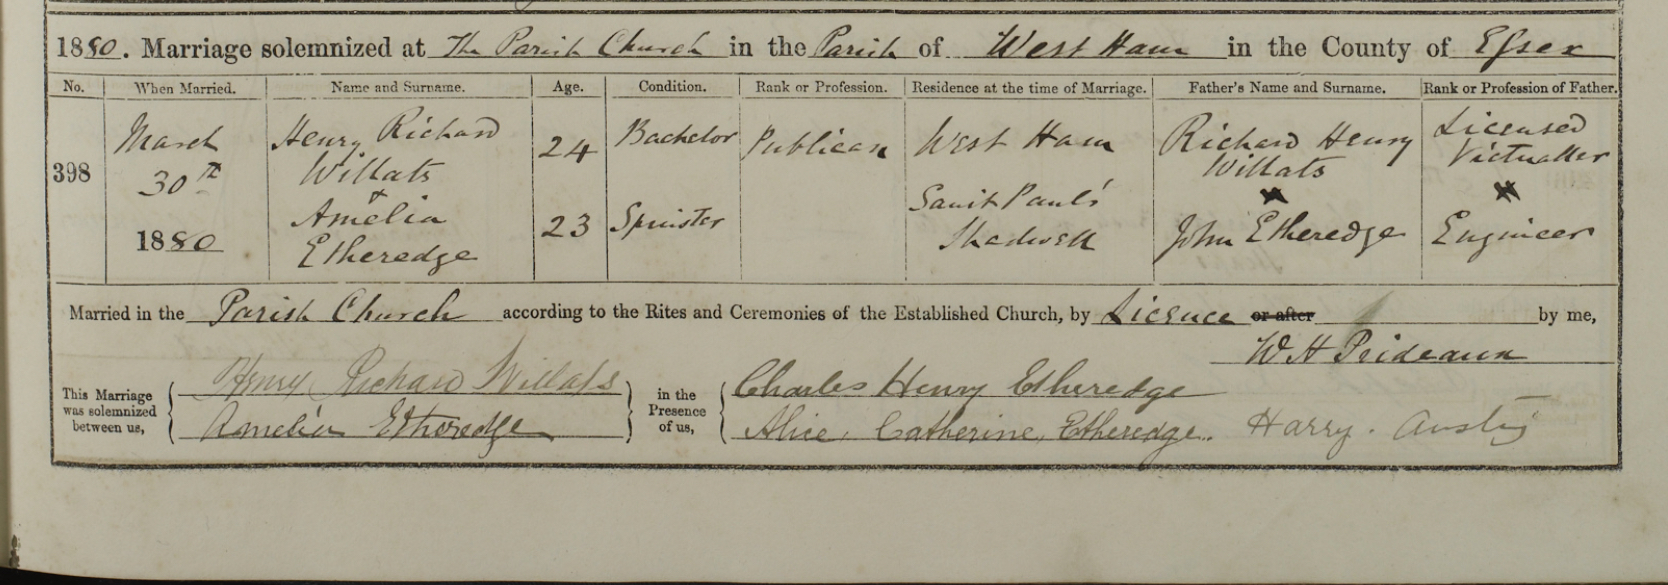 1880. Marriage solemnized at The Parish Church in the Parish of West Ham in the County of Essex
No. When Married. Name and Surname. Age. Condition. Rank or Profession. Residence at the time of Marriage. Father's Name and Surname. Rank or Profession of Father.
398
March
30th
1880
Henry Richard
Willats
+
Amelia
Etheredge
24
23
Bachelor
Spinster
Publican
West Ham
Saint Paul's
Shadwell
Richard Henry
Willats
x
John Etheredge
Licensed
Victualler
x
Engineer
Married in the Parish Church according to the Rites and Ceremonies of the Established Church, by Licence or after by me,
W H Prideaux
This Marriage
was solemnized
between us,
Henry Richard Willats
Amelia Etheredge
in the
Presence
of us,
Charles Henry Etheredge
Alice, Catherine, Etheredge. Harry. Austin